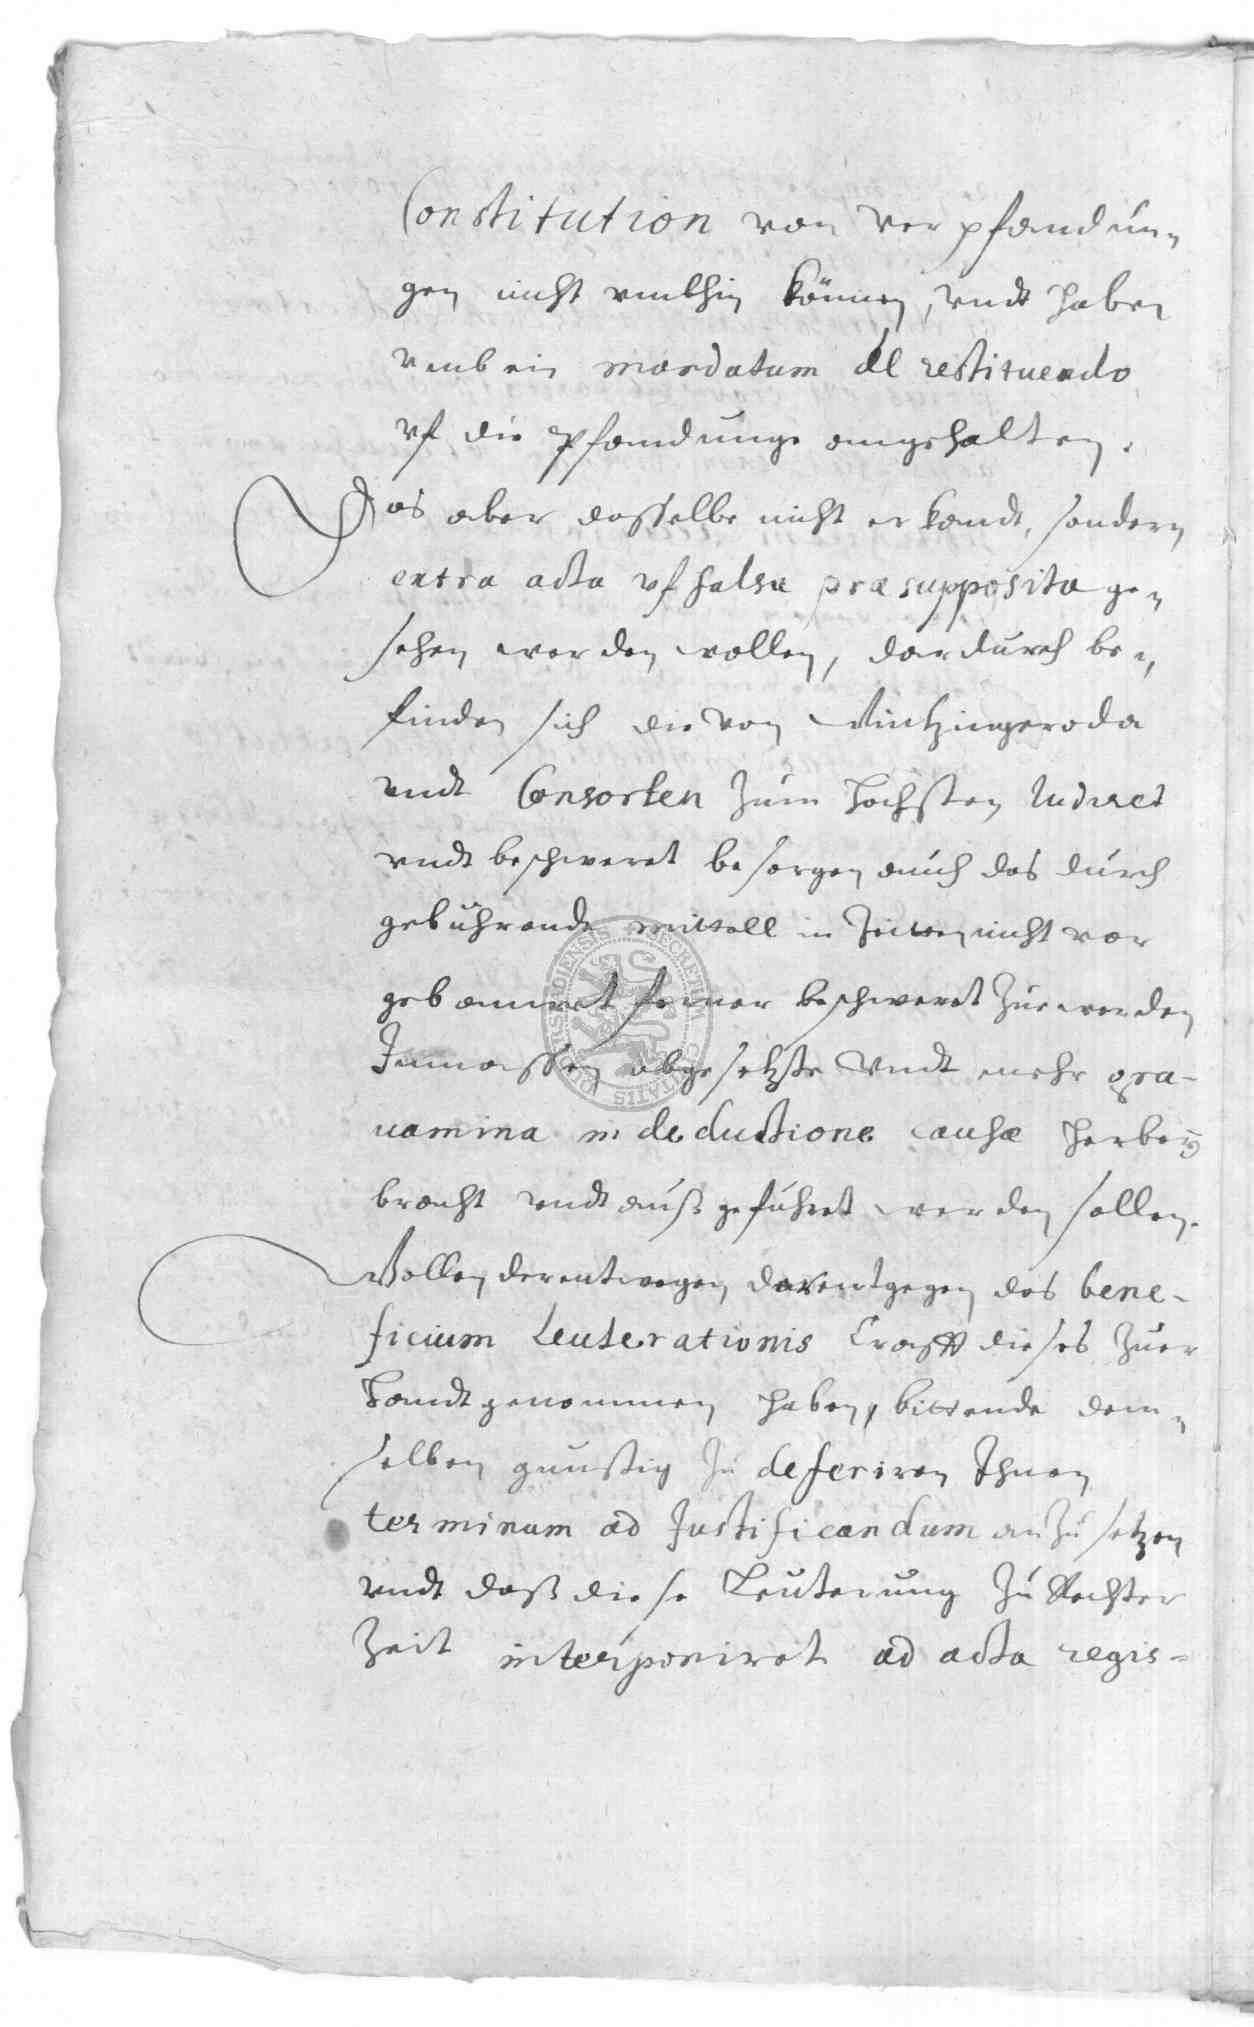 Constitution von verpfandun-
gen nicht umbhin können, undt haben
umb ein mandatum de restituendo
uf die Pfandunge angehalten.
Das aber dasselbe nicht erkandt, sondern
extra acta uf falsa præsupposita ge-
sehen werden wollen, dardurch be-
finden sich die von Wintzingeroda
undt Consorten zum hochsten
undt beschweret besorgen auch das durch
gebührende mittell in Zeitten nicht vor
gebauwet ferner beschweret zue werden
Inmassen abgesetzte Undt mehr gra-
uamina in deductione causæ herbey
bracht undt auß gefuhret werden sollen.
Wollen derentwegen darentgegen das bene-
ficium Leuterationis Crafft dieses zuer
handt genommen haben, bittende dem-
selben gunstig zu deferiren Ihnen
terminum ad Justificandum anzusetzen
undt daß diese Leuterung zu Rechter
Zeit interponiret ad acta regis-
SECRETUM CIVITATIS